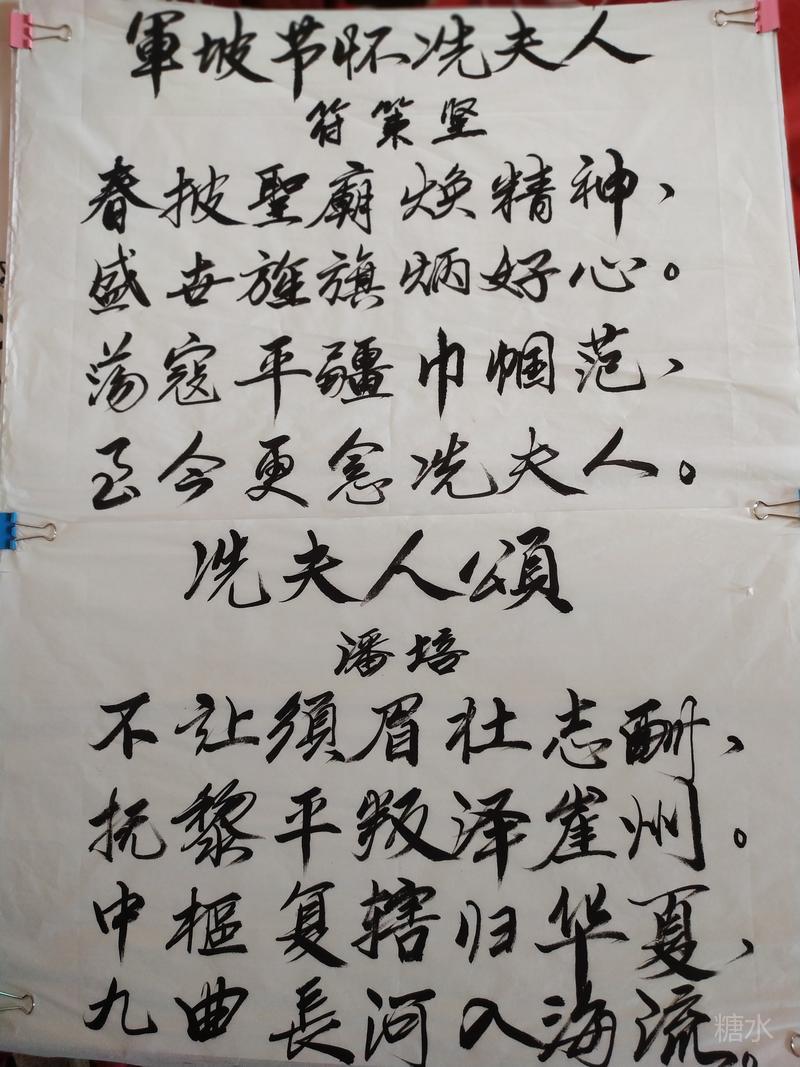 軍坡节怀冼夫人
符策坚
春披聖廟焕精神、
盛世旌旗炳好心。
荡寇平疆巾帼范、
至今更念冼夫人。
冼夫人頌
潘培
不让須眉壮志酬、
抚黎平叛泽崖州。
中樞复辖归华夏、
九曲長河入海流。
糖水